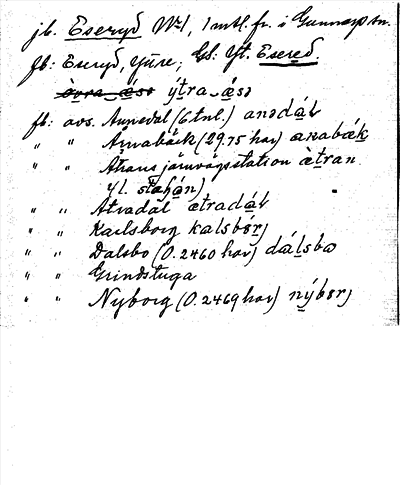 jb. Eseryd № 1, 1 mtl. fr. i Gunnarp sn.
fb: Eseryd, Yttre; Gs. Yt. Esered.
ỳtra-æsə
fb: avs. Annedal (6 tnl.) anədál
" " Arnabäck (29.75 har) anabǽk
" " Ätrans järnvägsstation ǽtran.
Yl. stahán)
" " Ätradal ætradál
" " Karlsborg kalsbɵrj
" " Dalsbo (0.2460 har) dálsbo
" " Grindstuga
" " Nyborg (0.2469 har) nýbɵrj